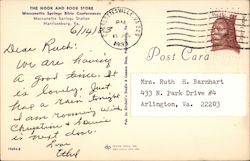 THE NOOK AND BOOK STORE
Massanetta Springs Bible Conferences
Massanetta Springs Station
Harrisonburg, Va.
PM
1983
6/14/83
Post Card
Dear Ruth:
We are having
a good time. It
is lovely. Just
had a rain tonight
I am rooming with
is next door.
Love
Ethel
Mrs. Ruth H. Barnhart
433 N. Park Drive #4
Arlington, Va. 22203